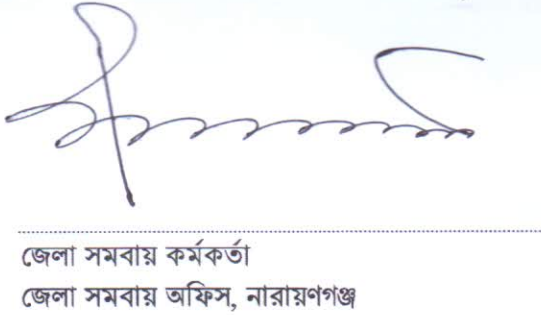 জেলা সমবায় কর্মকর্তা
জেলা সমবায় অফিস, নারায়ণগঞ্জ